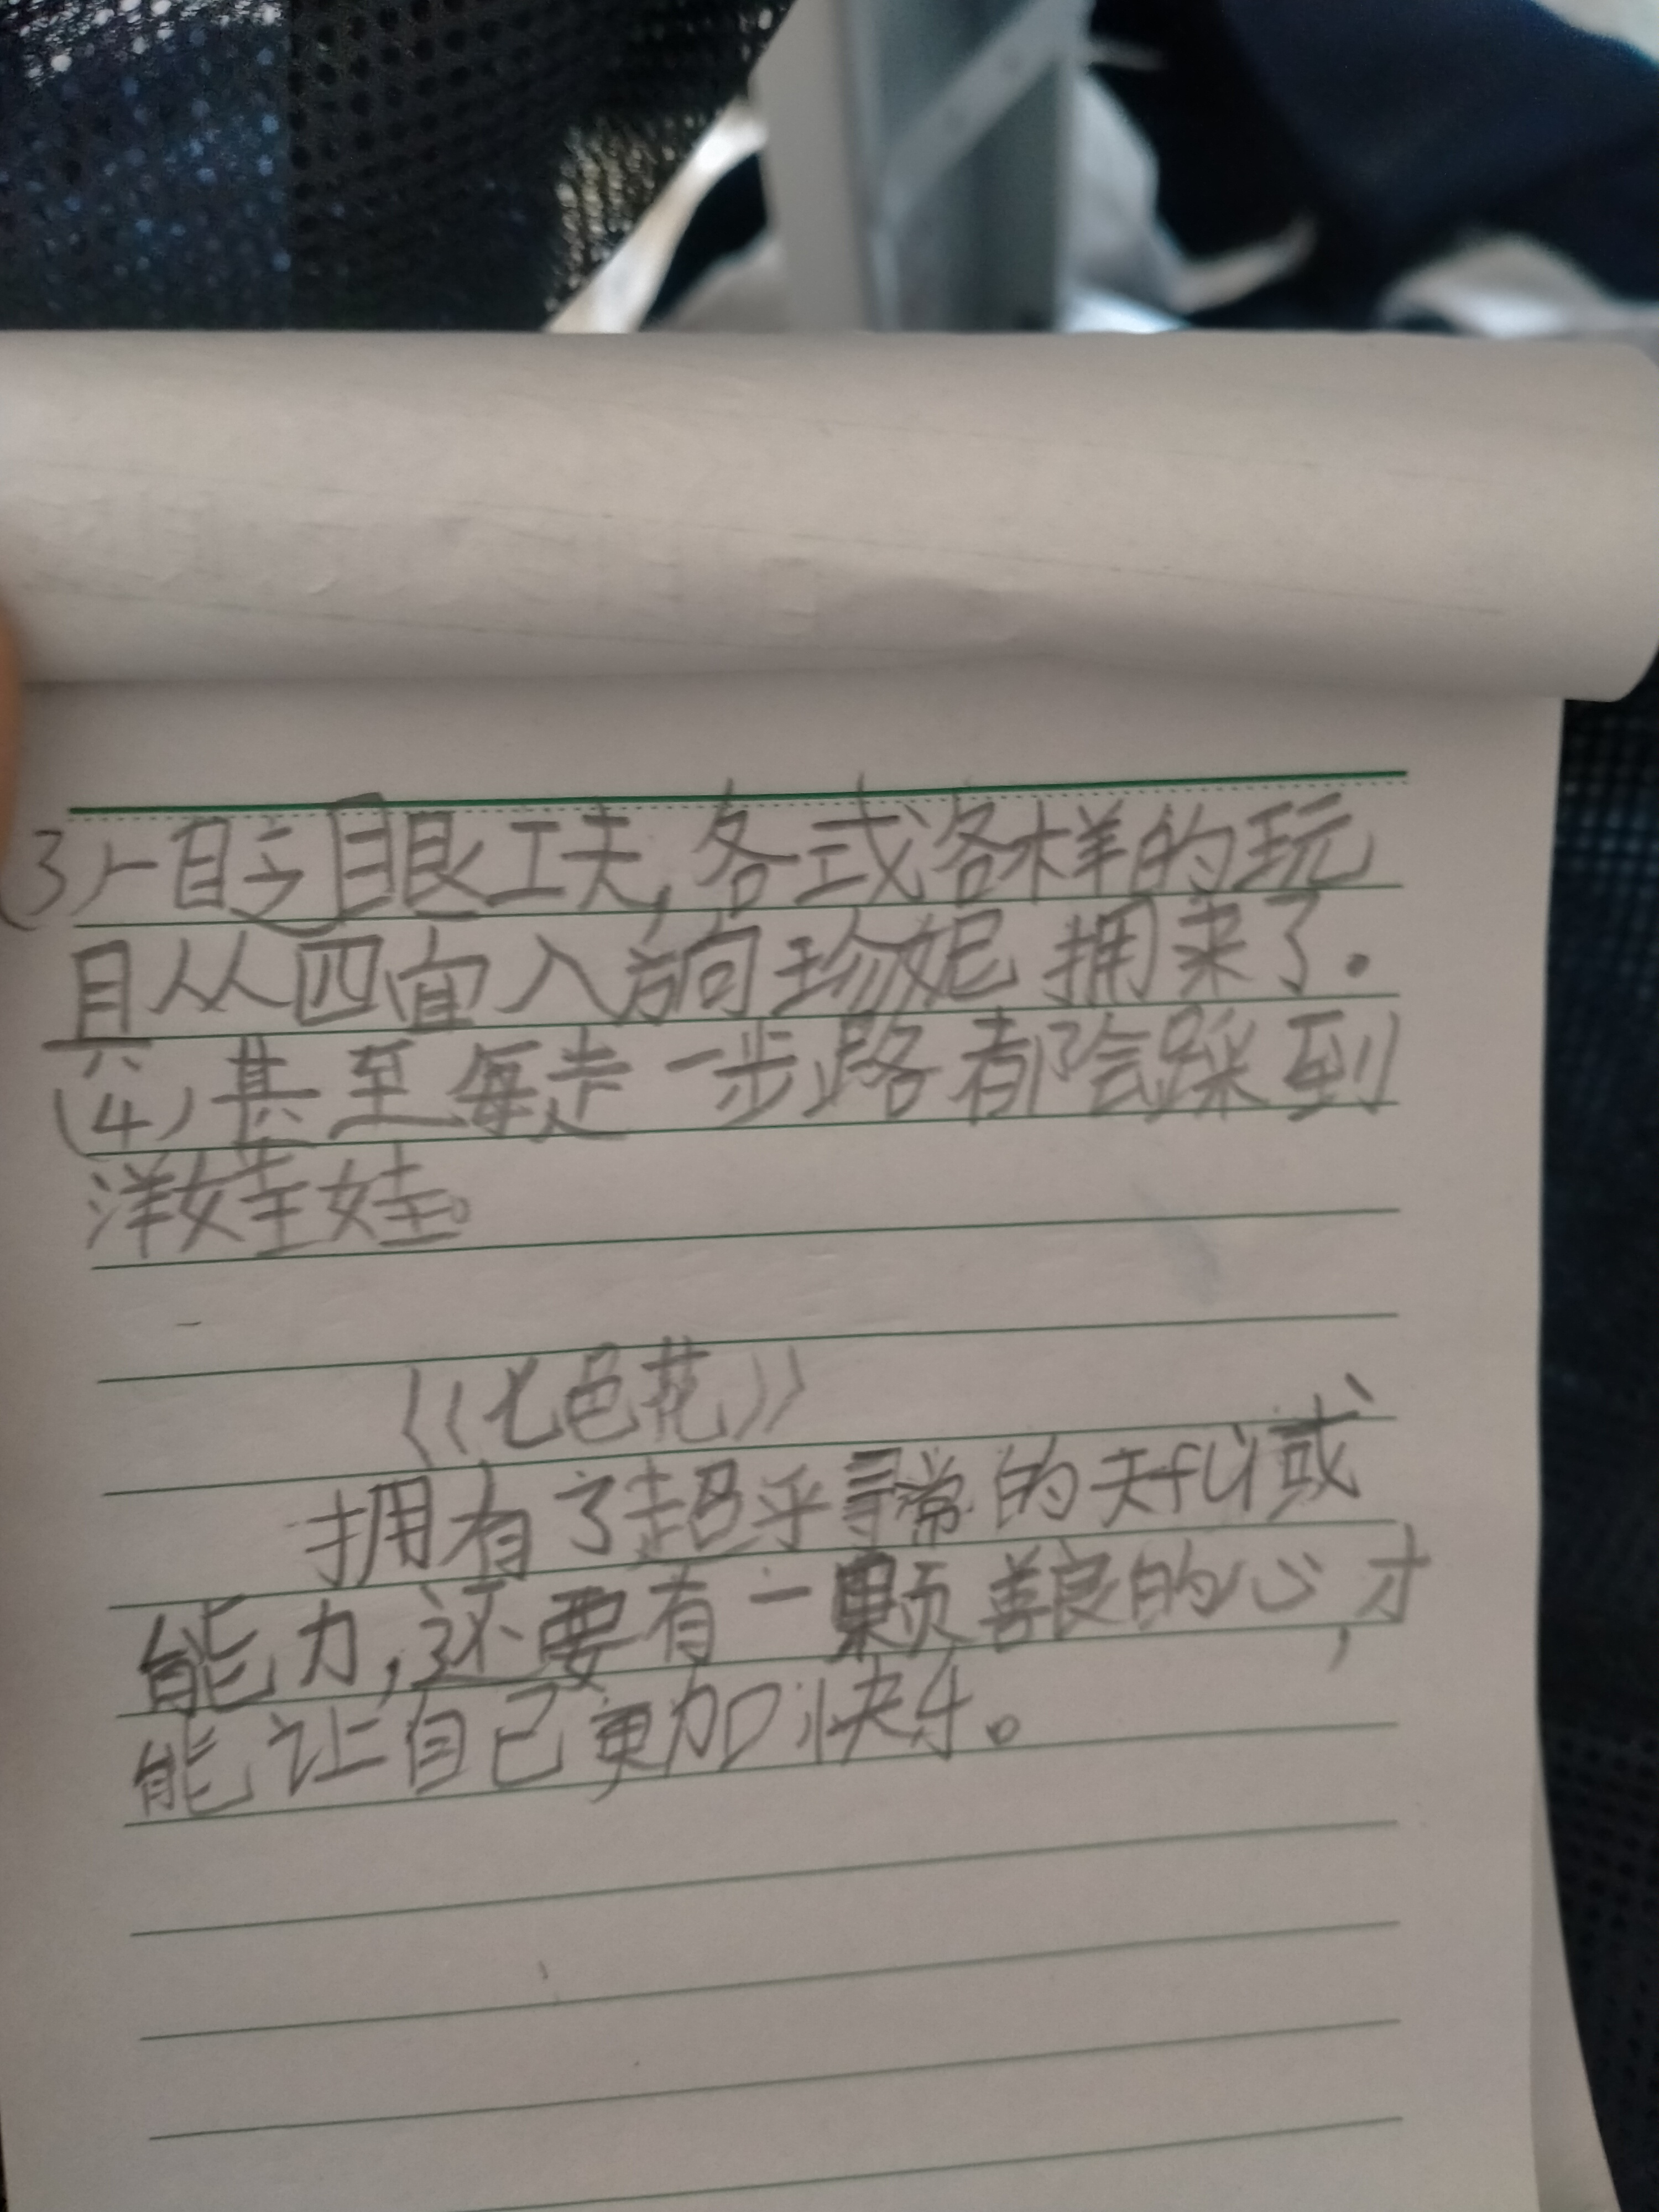 (3)一眨眼工夫,各式各样的玩
具从四面八方向珍妮拥来了.
(4)甚至每走一步路都会踩到
洋娃娃。
《七色花》
拥有了超乎寻常的天fù或
能力,还要有一颗善良的心,才
能让自己更加快乐。